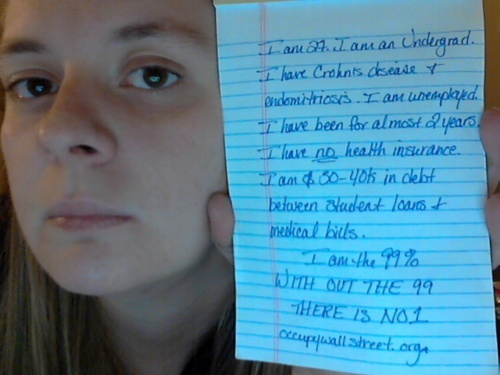 I am 27. I am an Undergrad.
I have Crohn's disease &
endomitriosis. I am unemployed.
I have been for almost 2 years.
I have no health insurance.
I am $30-40k in debt
between student loans &
medical bills.
I am the 99%
WITH OUT THE 99
THERE IS NO 1
occupywallstreet.org